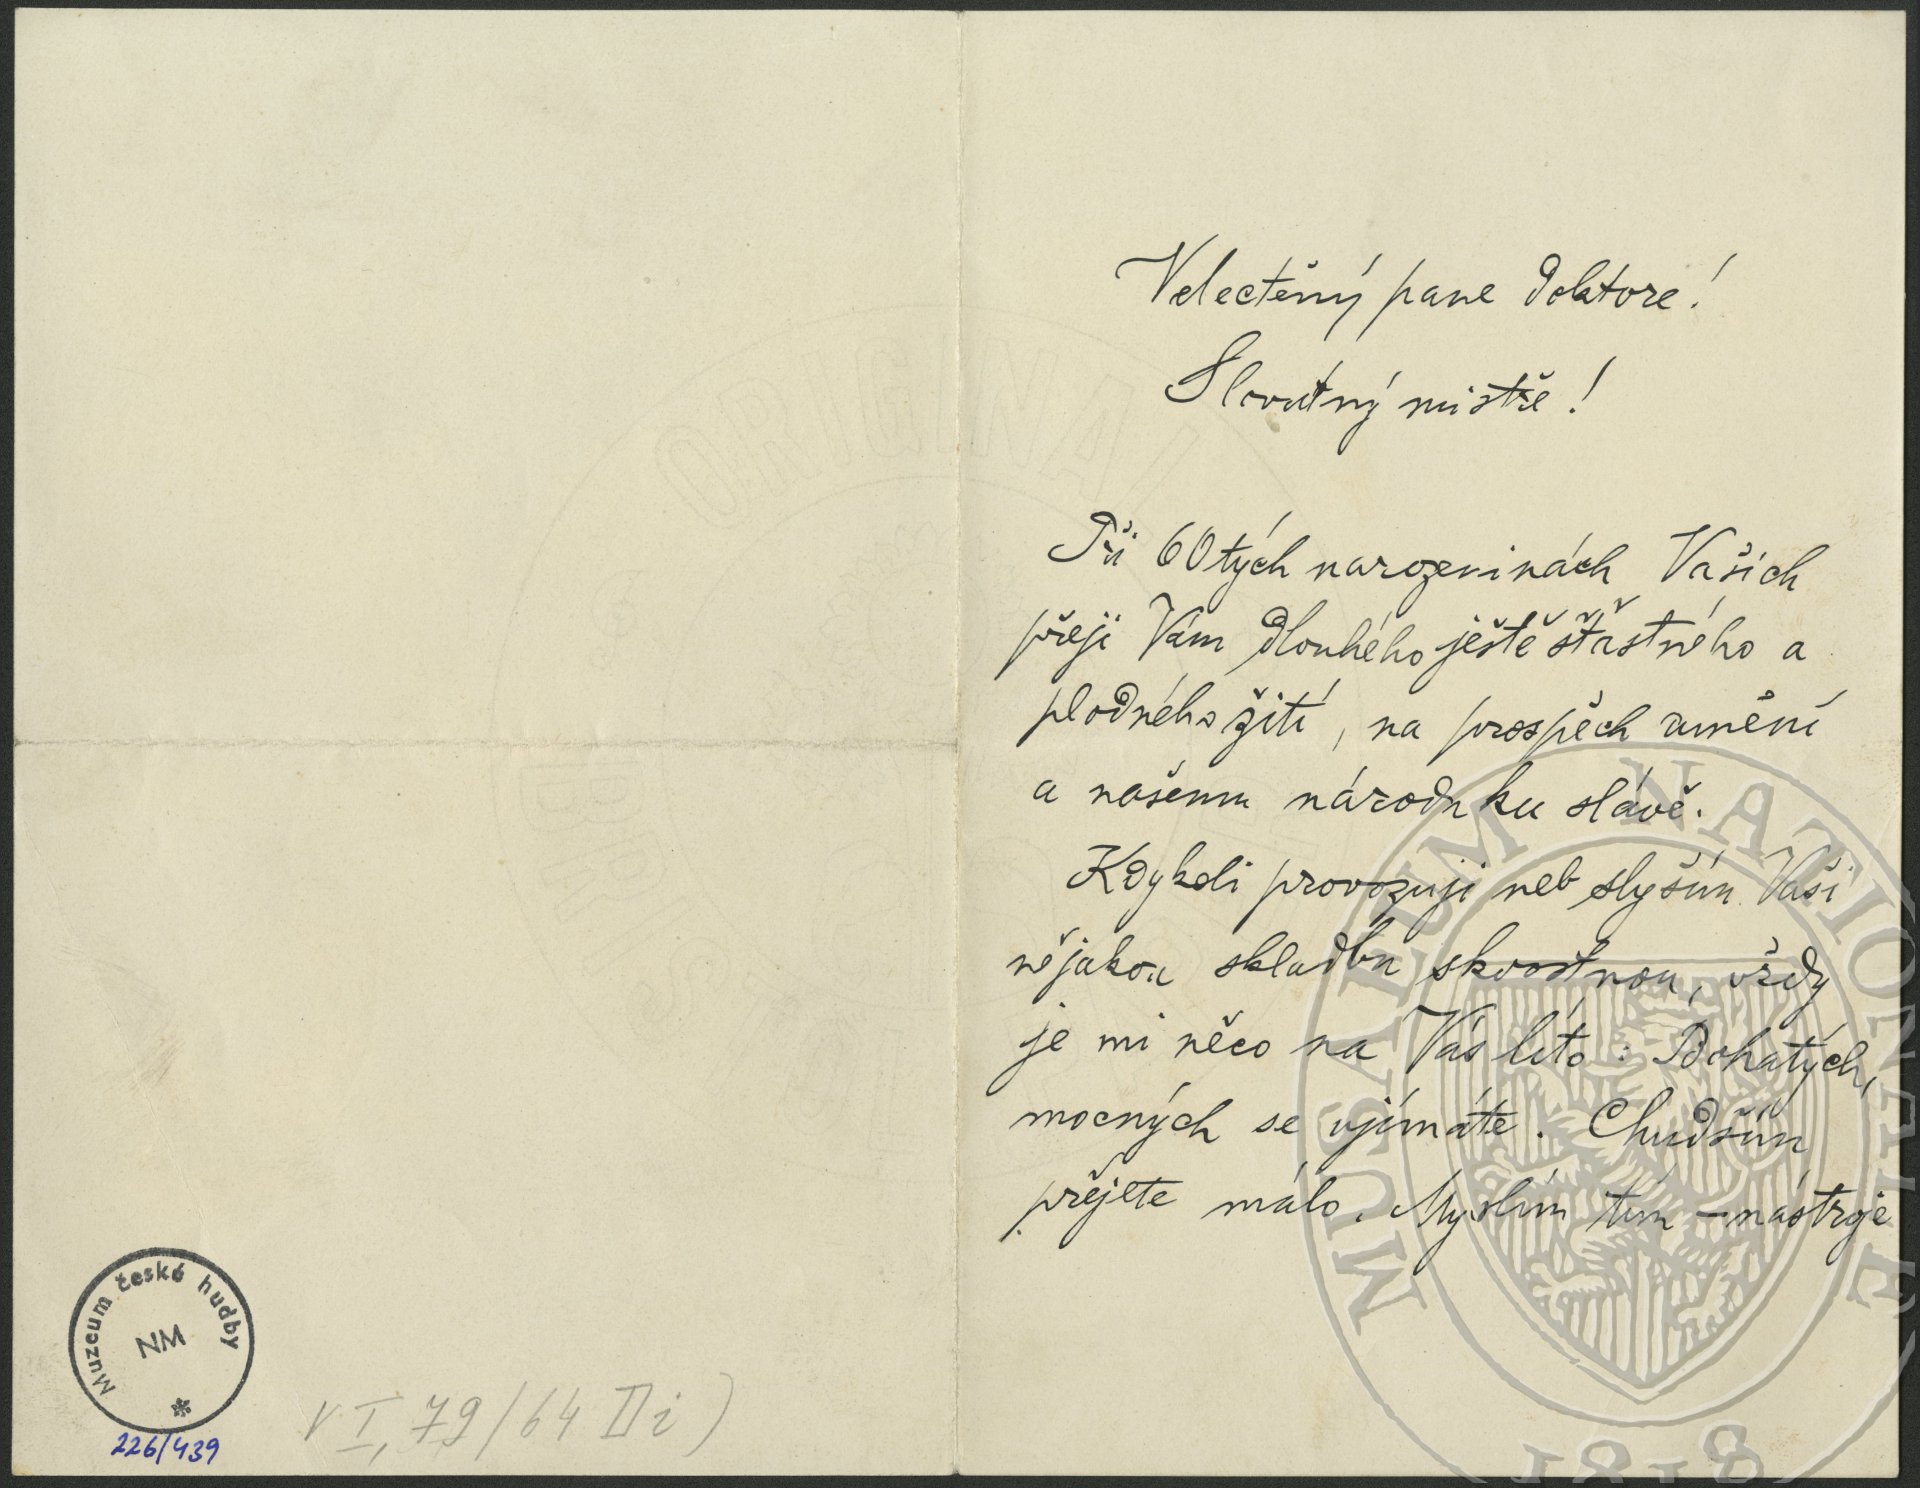 Velectěný pane doktore!
Slovutný mistře!
Při 60tých narozeninách Vašich
přeji Vám dlouhého ještě šťastného a
plodného žití, na prospěch umění
a našemu národu ku slávě.
Kdykoli provozuji neb slyším Vaši
nějakou skladbu skvostnou, vždy
je mi něco na Vás líto: Bohatých,
mocných se ujímáte. Chudším
přejete málo. Myslím tím – nástroje
Muzeum české hudby
NM
226/439
I, 79/64 II i)
MUSAEUM NATIONALE
1818